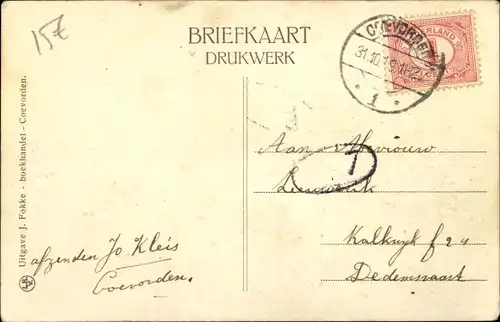 15€
BRIEFKAART
DRUKWERK
COEVORDEN
31.10.1
1
NEDERLAND
Uitgave J. Fokke - boekhandel - Coevorden.
Aan Mevrouw
T
Kalkwijk f 24
Dedemsvaart
afzender Jo Kleis
Coevorden.